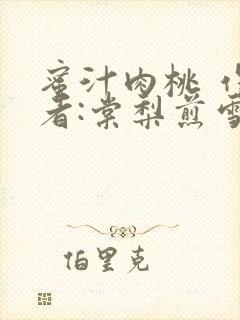 蜜汁肉桃
者:棠梨煎雪
伯里克